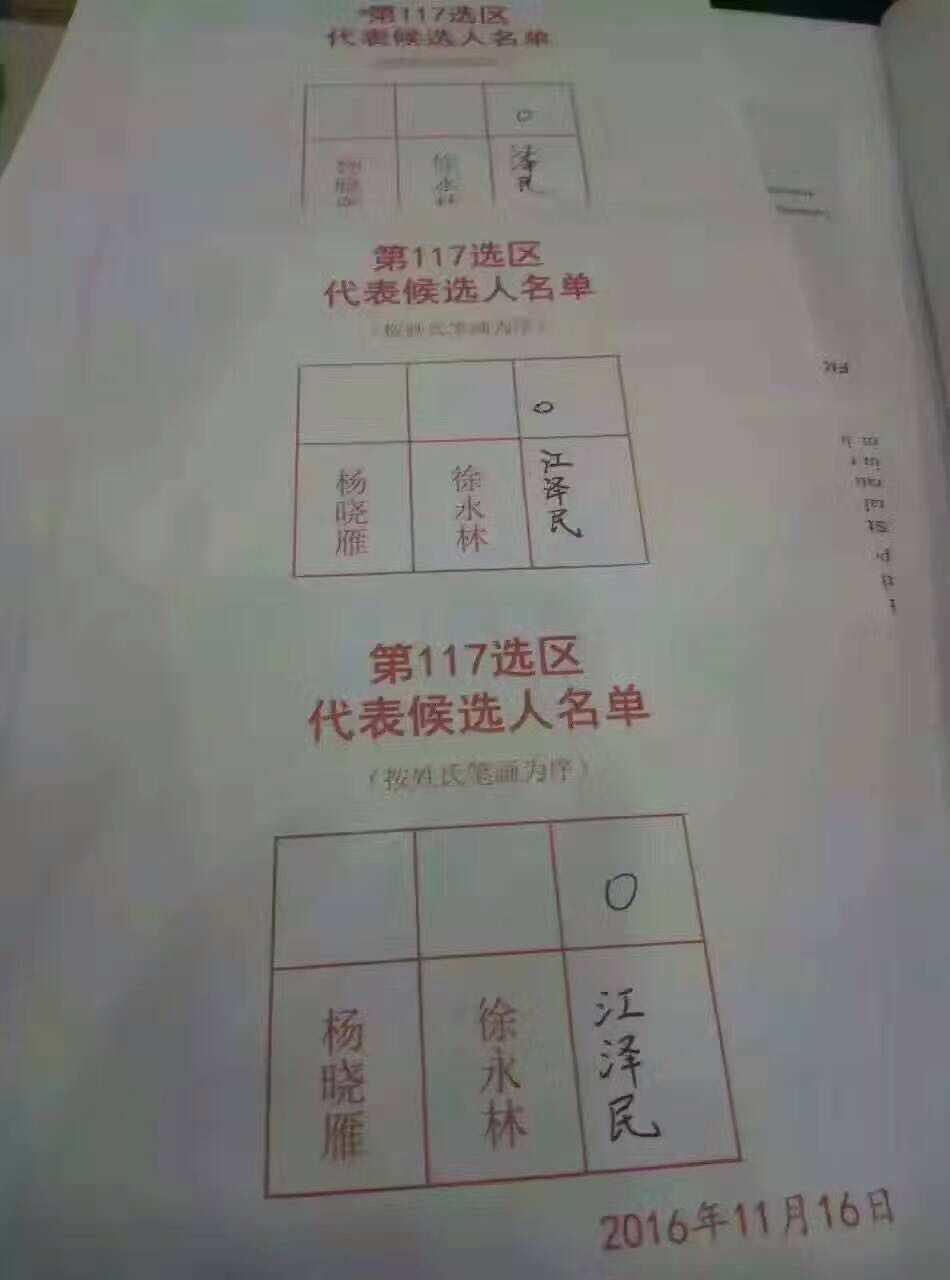 第117选区
代表候选人名单
O
徐永林
泽民
第117选区
代表候选人名单
（按姓氏笔画为序）
O
杨晓雁
徐永林
江泽民
第117选区
代表候选人名单
（按姓氏笔画为序）
O
杨晓雁
徐永林
江泽民
2016年11月16日